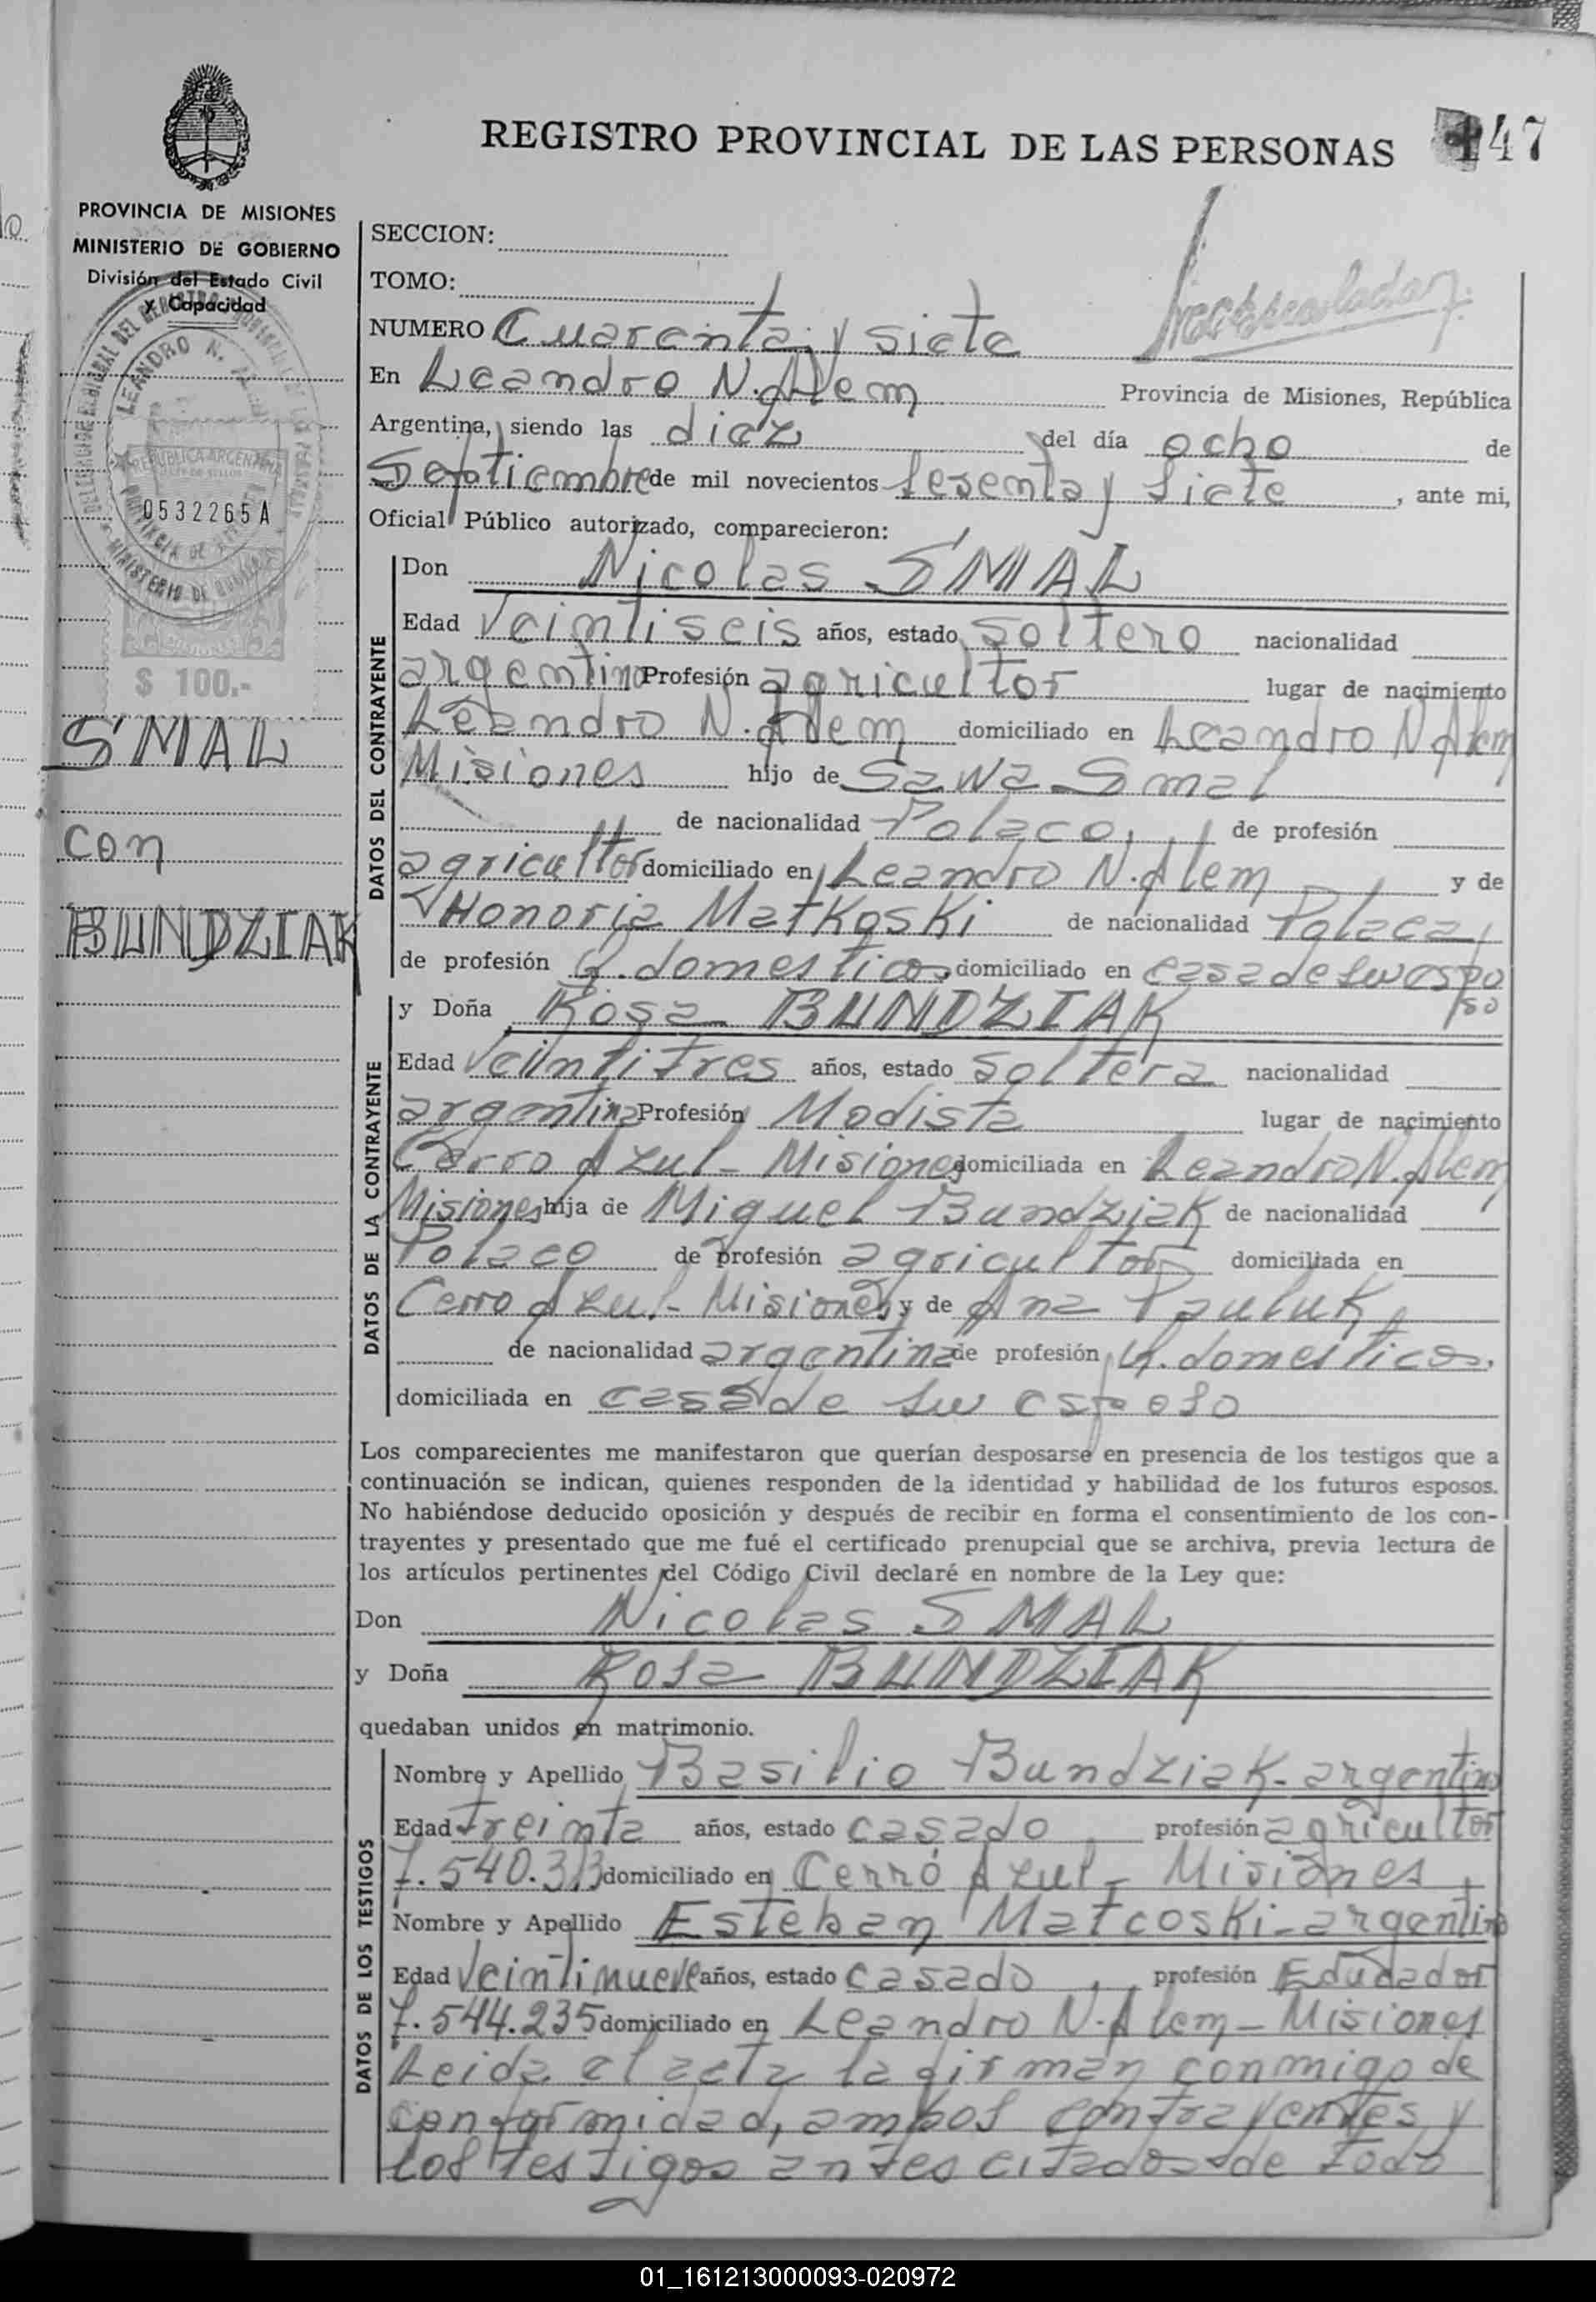 REGISTRO PROVINCIAL DE LAS PERSONAS 147
PROVINCIA DE MISIONES
MINISTERIO DE GOBIERNO
División del Estado Civil
y Capacidad
LEANDRO N.
REPUBLICA ARGENTINA
0532265 A
$ 100.-
SMAL
con
BUNDZIAK
SECCION:
TOMO:
NUMERO Cuarenta y siete
En Leandro N. Alem Provincia de Misiones, República
Argentina, siendo las diez del día ocho de
Septiembre de mil novecientos sesenta y siete, ante mi,
Oficial Público autorizado, comparecieron:
DATOS DEL CONTRAYENTE
Don Nicolas SMAL
Edad Veintiseis años, estado soltero nacionalidad
argentino Profesión agricultor lugar de nacimiento
Leandro N. Alem domiciliado en Leandro N Alem
Misiones hijo de Sawa Smal
de nacionalidad Polaco, de profesión
agricultor domiciliado en Leandro N. Alem y de
Honoria Matkoski de nacionalidad Polaca,
de profesión Q. domesticos, domiciliado en casa de su espo
so
DATOS DE LA CONTRAYENTE
y Doña Rosa BUNDZIAK
Edad Veintitres años, estado soltera nacionalidad
argentina Profesión Modista lugar de nacimiento
Cerro Azul - Misiones domiciliada en Leandro N. Alem
Misiones hija de Miguel Bundziak de nacionalidad
Polaco de profesión agricultor domiciliada en
Cerro Azul - Misiones, y de Ana Pauluk,
de nacionalidad argentina de profesión Q. domesticos,
domiciliada en casa de su esposo
Los comparecientes me manifestaron que querían desposarse en presencia de los testigos que a
continuación se indican, quienes responden de la identidad y habilidad de los futuros esposos.
No habiéndose deducido oposición y después de recibir en forma el consentimiento de los con-
trayentes y presentado que me fué el certificado prenupcial que se archiva, previa lectura de
los artículos pertinentes del Código Civil declaré en nombre de la Ley que:
Don Nicolas SMAL
y Doña Rosa BUNDZIAK
quedaban unidos en matrimonio.
DATOS DE LOS TESTIGOS
Nombre y Apellido Basilio Bundziak - argentino
Edad treinta años, estado casado, profesión agricultor
7.540.313 domiciliado en Cerro Azul - Misiones
Nombre y Apellido Esteban Matcoski - argentino
Edad Veintinueve años, estado casado, profesión
7.544.235 domiciliado en Leandro N. Alem - Misiones
Leida el acta la firman conmigo de
conformidad, ambos contrayentes y
los testigos antes citados de todo
01_161213000093-020972